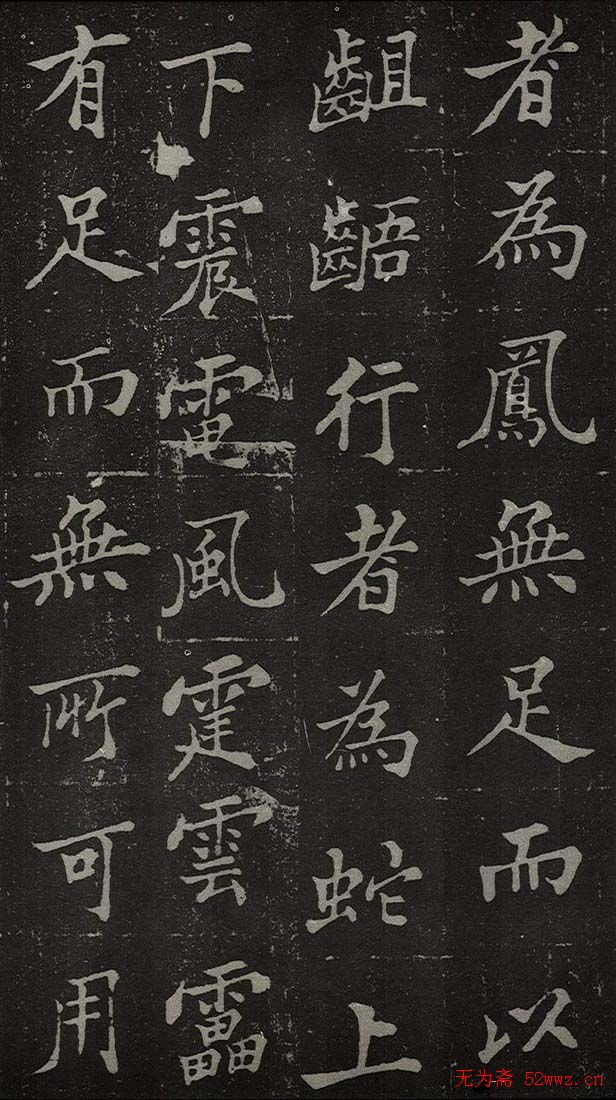 者為鳳無足而以
齟齬行者為蛇上
下震電風霆雲靁
有足而無所可用
无为斋 52wwz.cn